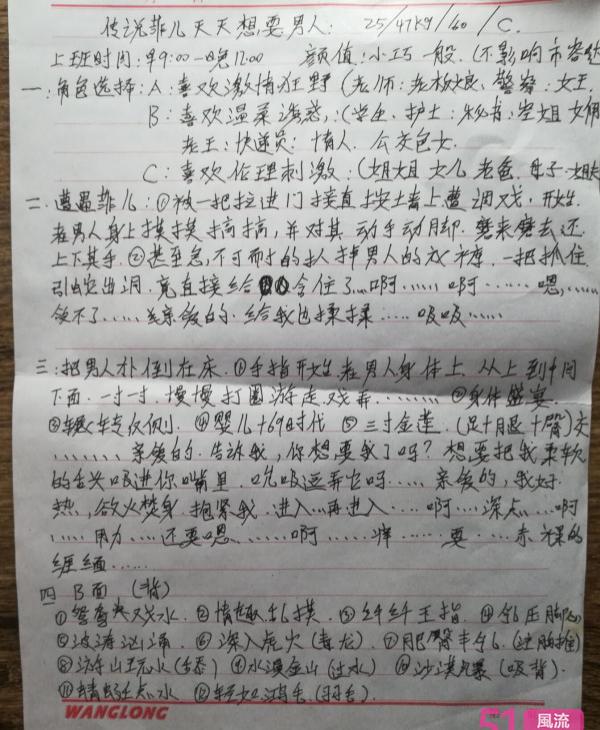 传说菲儿天天想要男人: 25/47kg/160/C.
上班时间:早9:00—晚12:00 颜值:小巧一般.(不影响市容
一:角色选择:A:喜欢激情狂野(老师:老板娘、警察:女王
B:喜欢温柔诱惑,:(学生、护士:秘书:空姐
老王:快递员:情人.公交色女.
C:喜欢伦理刺激:(姐姐 女儿 老爸.母子
二.遭遇菲儿:①被一把拉进门接直按土墙上遭调戏.开始
在男人身上摸摸搞搞,并对其动手动脚.磨来磨去还
上下其手.②甚至急,不可耐的扒掉男人的衣裤.一把抓住
引蛇出洞.竟直接给 含住了…啊…… 啊…… 嗯,……
受不了……亲爱的.给我也揉揉…… 吸吸……
三:把男人扑倒在床.①手指开始在男人身体上.从上到中间
下面.一寸一寸.慢慢打圈游走戏弄……… ②身体盛宴.
③辗转反侧. ④婴儿+69时代 ⑤三寸金莲.(足+腿+臀)交
………亲爱的.告诉我,你想要我了吗?想要把我柔软
的舌头吸进你嘴里.吮吸逗弄它吗……亲爱的,我好
热,欲火焚身.抱紧我.进入…再进入……啊…深点…啊
…… 用力…还要嗯………啊……痒……要…赤裸的
缠绵……
四 B面 (背)
①鸳鸯戏水.②情趣乳摸.③纤纤玉指.④乳压
⑤波涛汹涌.⑥深入虎穴(毒龙).⑦肥臀丰乳.
⑧游山玩水(舔) ⑨水漫金山(过水) ⑩沙漠风暴(吸背).
⑪蜻蜓点水 ⑫轻如鸿毛.
WANGLONG
51
風流